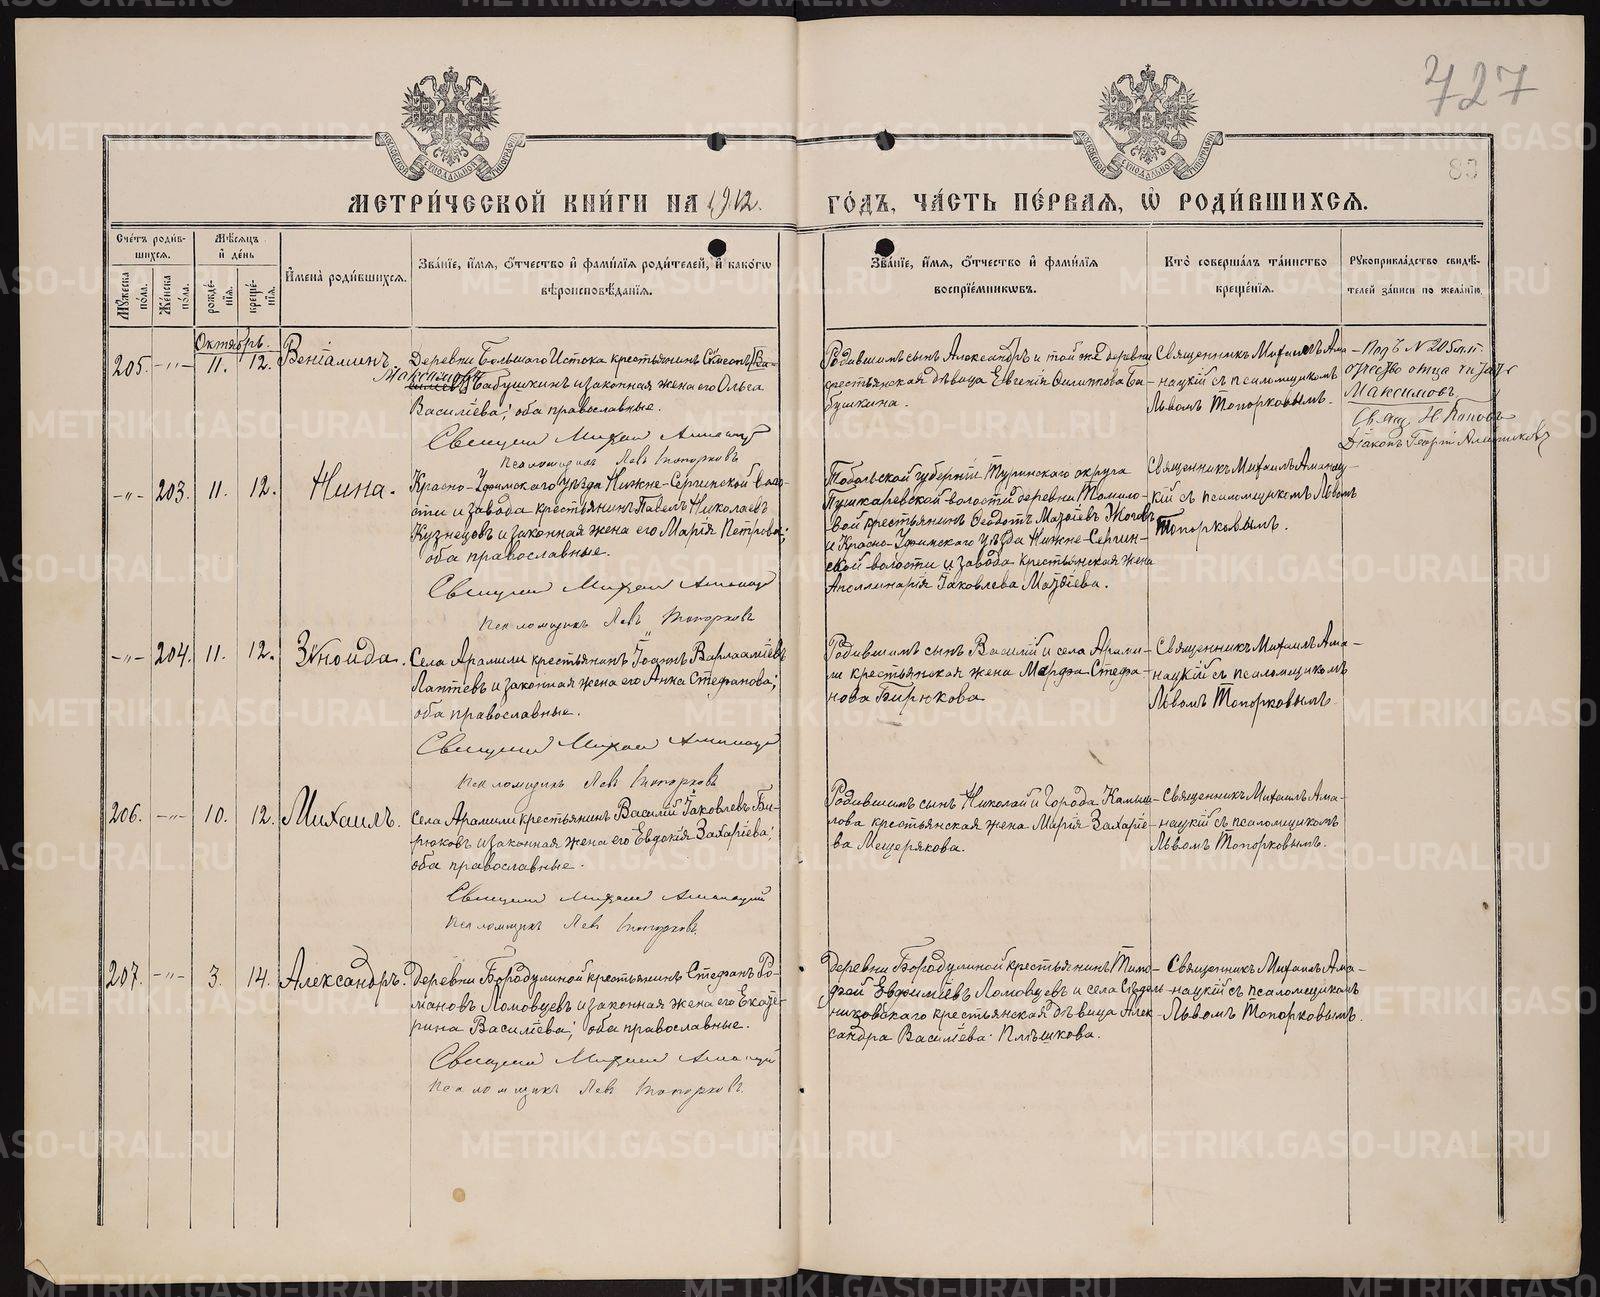 727
83
МЕТРИ́ЧЕСКОЙ КНИ́ГИ НА 1912. ГО́ДЪ, ЧА́СТЬ ПЕ́РВАЯ, Ѡ҆ РОДИ́ВШИХСЯ.
Сче́тъ роди́в-
шихся.
Му́жеска по́ла.
Же́нска по́ла.
Мѣ́сяцъ
и҆ де́нь
рожде́-
нїя.
креще́-
нїя.
И҆мена̀ роди́вшихся.
Зва́нїе, и҆́мя, ѻ҆́тчество и҆ фами́лїя роди́телей, и҆ како́гѡ
вѣроисповѣ́данїя.
Зва́нїе, и҆́мя, ѻ҆́тчество и҆ фами́лїя
воспрїе́мникѡвъ.
Кто̀ соверша́лъ та́инство
креще́нїя.
Рукоприкла́дство свидѣ́-
телей за́писи по жела́нїю.
Октябрь.
205. -"- 11. 12. Веніаминъ.
Деревни Большаго Истока крестьянинъ Симеонъ
Максимовъ
Бабушкинъ и законная жена его Ольга
Василіева; оба православные.
Священникъ Михаилъ Аманацкій
Псаломщикъ Левъ Топорковъ
Родившимъ сынъ Александръ и той же деревни
крестьянская дѣвица Евгенія Филиппова Ба-
бушкина.
Священникъ Михаилъ Ама-
нацкій съ псаломщикомъ
Львомъ Топорковымъ.
Подъ N 205 м.п.
отчество отца читать
Максимовъ
Свящ. Н. Поповъ
Діаконъ Георгій
-"- 203. 11. 12. Нина.
Красно-Уфимскаго уѣзда Нижне-Сергинской воло-
сти и завода крестьянинъ Павелъ Николаевъ
Кузнецовъ и законная жена его Марія Петрова;
оба православные.
Священникъ Михаилъ Аманацкій
Псаломщикъ Левъ Топорковъ
Тобольской губерніи Туринскаго округа
Пушкаревской волости деревни Томило-
вой крестьянинъ Ѳеодотъ Матѳіевъ
и Красно-Уфимскаго уѣзда Нижне-Сергин-
ской волости и завода крестьянская жена
Апеллинарія Іаковлева Матѳіева.
Священникъ Михаилъ Аманац-
кій съ псаломщикомъ Львомъ
Топорковымъ.
-"- 204. 11. 12. Зиноида.
Села Арамили крестьянинъ Іоаннъ Варлааміевъ
Лаптевъ и законная жена его Анна Стефанова;
оба православные.
Священникъ Михаилъ Аманацкій
Псаломщикъ Левъ Топорковъ
Родившимъ сынъ Василій и села Арами-
ли крестьянская жена Марфа Стефа-
нова Бирюкова
Священникъ Михаилъ Ама-
нацкій съ псаломщикомъ
Львомъ Топорковымъ.
206. -"- 10. 12. Михаилъ.
Села Арамили крестьянинъ Василій Іаковлевъ Би-
рюковъ и законная жена его Евдокія Захаріева;
оба православные.
Священникъ Михаилъ Аманацкій
Псаломщикъ Левъ Топорковъ.
Родившимъ сынъ Николай и города Камыш-
лова крестьянская жена Марія Захаріе-
ва Мещерякова.
Священникъ Михаилъ Ама-
нацкій съ псаломщикомъ
Львомъ Топорковымъ.
207. -"- 3. 14. Александръ.
Деревни Бородулиной крестьянинъ Стефанъ Ро-
мановъ Ломовцевъ и законная жена его Екате-
рина Василіева; оба православные.
Священникъ Михаилъ Аманацкій
Псаломщикъ Левъ Топорковъ.
Деревни Бородулиной крестьянинъ Тимо-
фей Евфиміевъ Ломовцевъ и села Сѣдель-
никовскаго крестьянская дѣвица Алек-
сандра Василіева Плѣшкова.
Священникъ Михаилъ Ама-
нацкій съ псаломщикомъ
Львомъ Топорковымъ.
METRIKI.GASO-URAL.RU